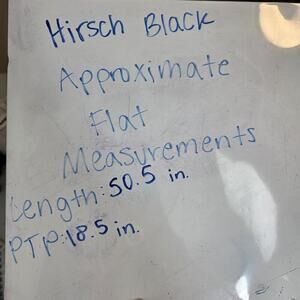 Hirsch Black
Approximate
Flat
Measurements
Length: 50.5 in.
PTP: 18.5 in.